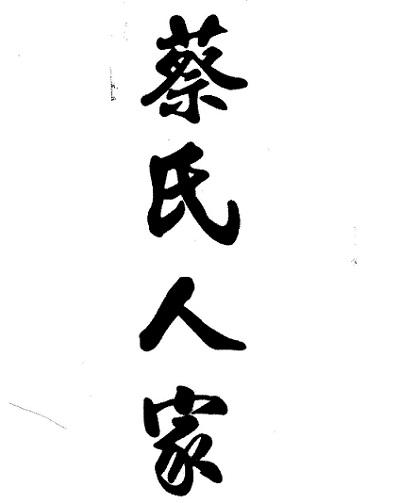 蔡氏人家